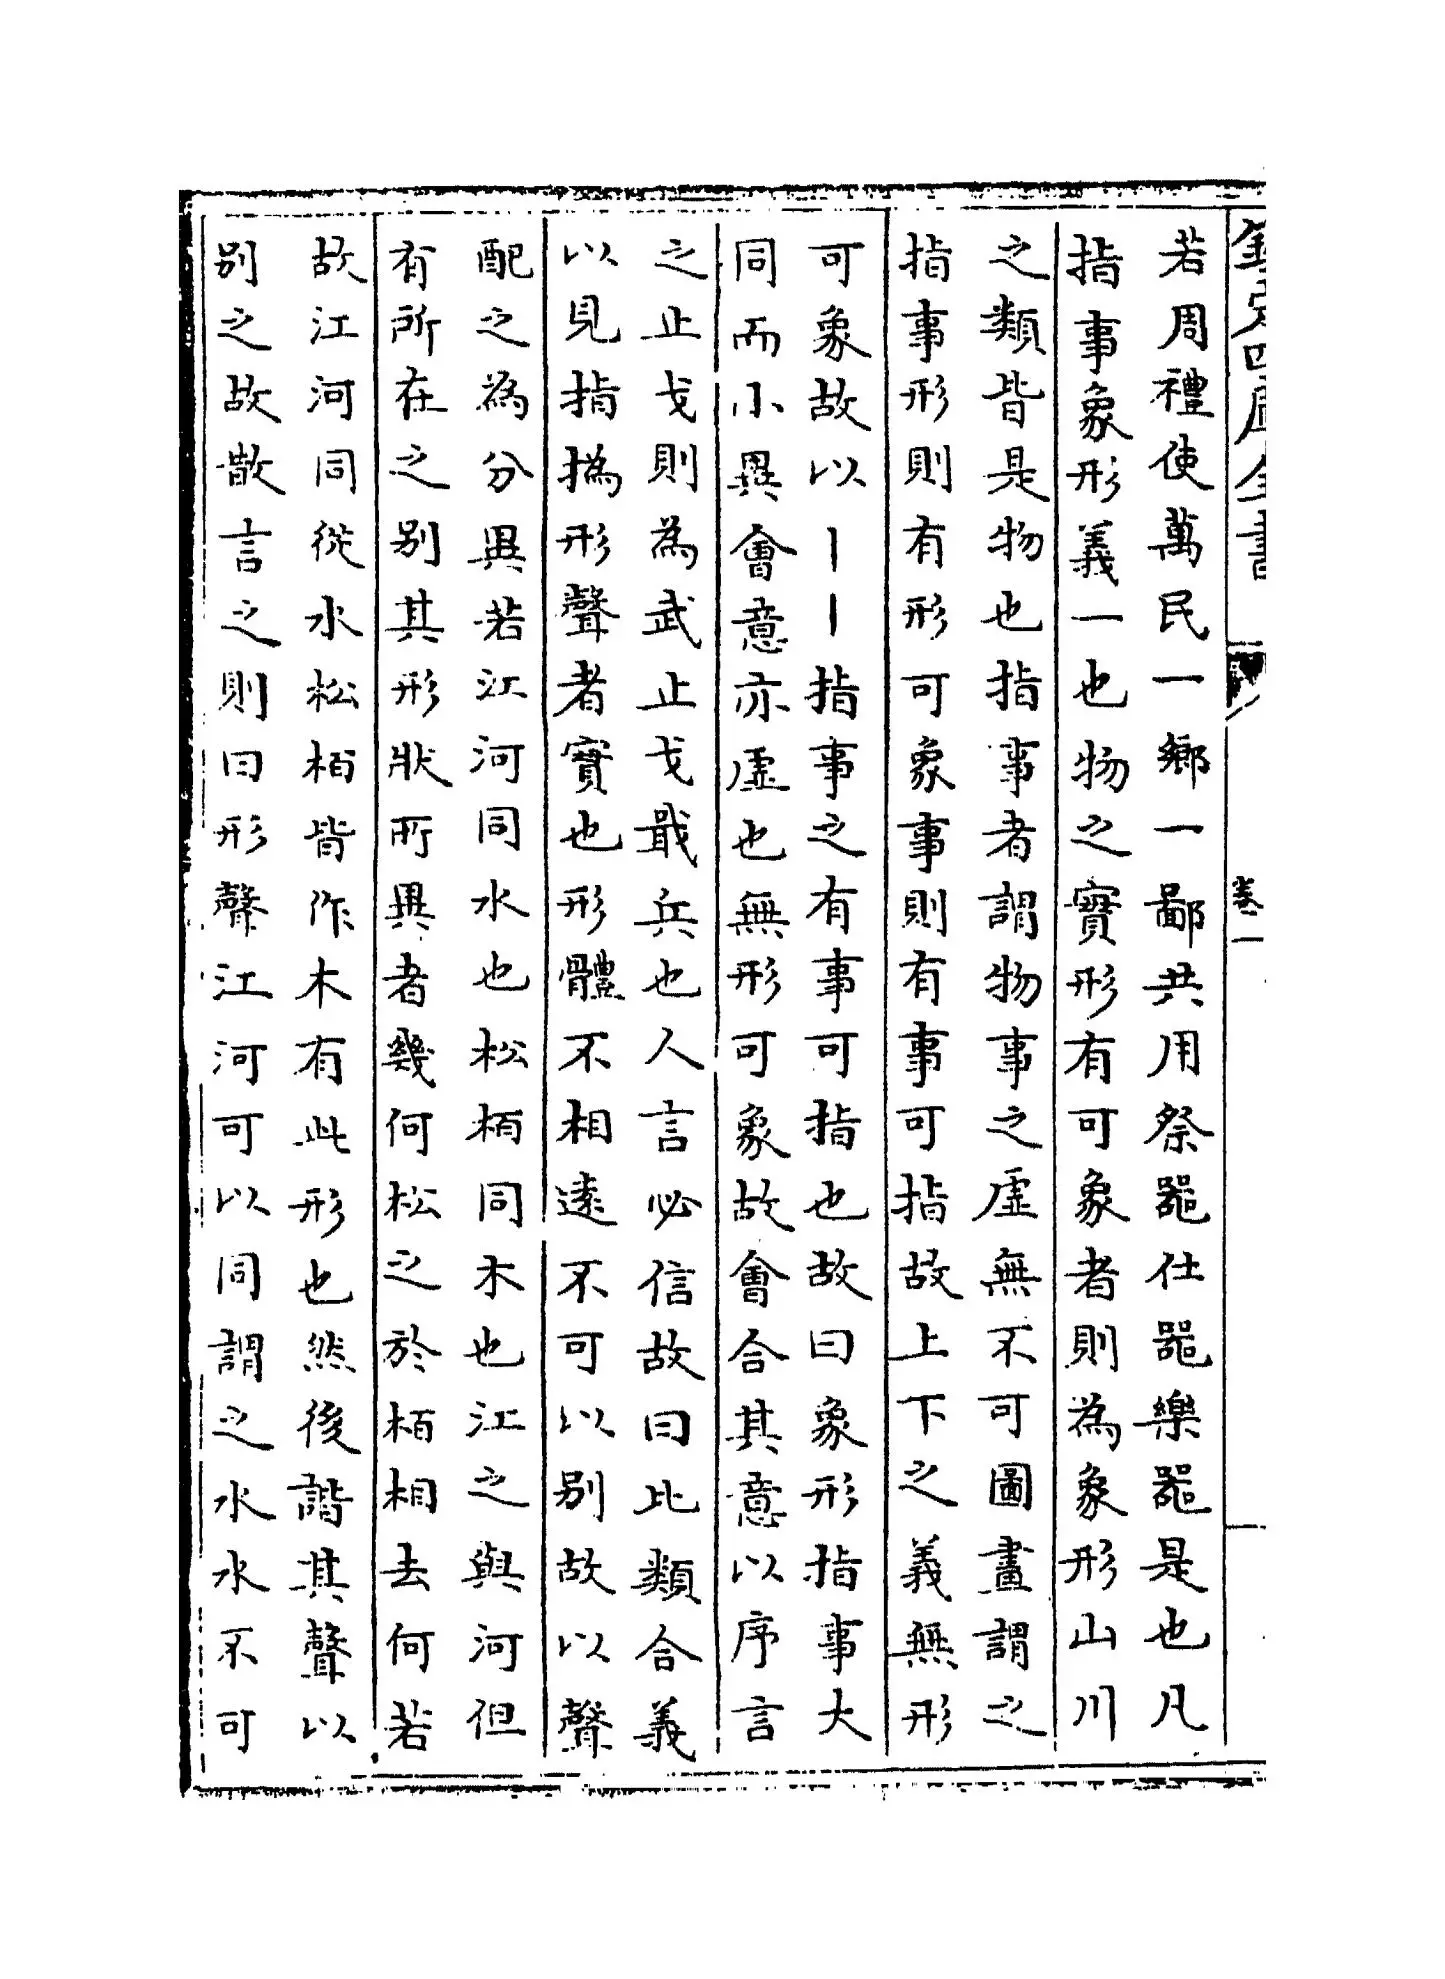 欽定四庫全書
卷一
若周禮使萬民一鄉一鄙共用祭器仕器樂器是也凡
指事象形義一也物之實形有可象者則為象形山川
之類皆是物也指事者謂物事之虛無不可圖畫謂之
指事形則有形可象事則有事可指故上下之義無形
可象故以丨丨指事之有事可指也故曰象形指事大
同而小異會意亦虛也無形可象故會合其意以序言
之止戈則為武止戈戢兵也人言必信故曰比類合義
以見指撝形聲者實也形體不相遠不可以別故以聲
配之為分異若江河同水也松栢同木也江之與河但
有所在之別其形狀所異者幾何松之於栢相去何若
故江河同從水松栢皆作木有此形也然後諧其聲以
別之故散言之則曰形聲江河可以同謂之水水不可